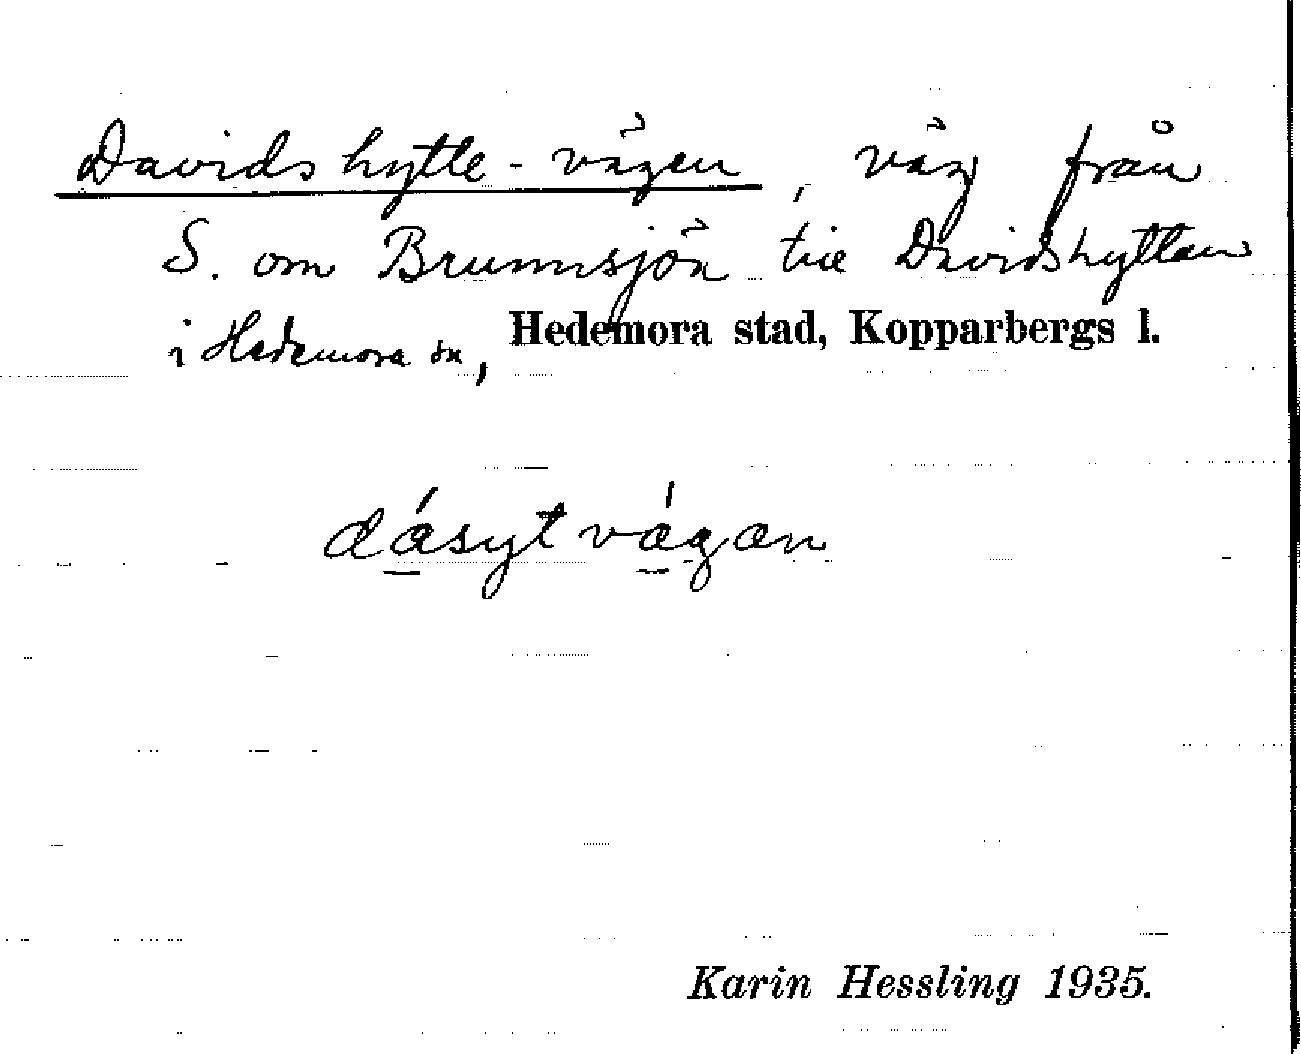 Davidshytte-vägen, väg från
S. om Brunnsjön till Davidshyttan
i Hedemora sn, Hedemora stad, Kopparbergs l.
dásytvägan
Karin Hessling 1935.